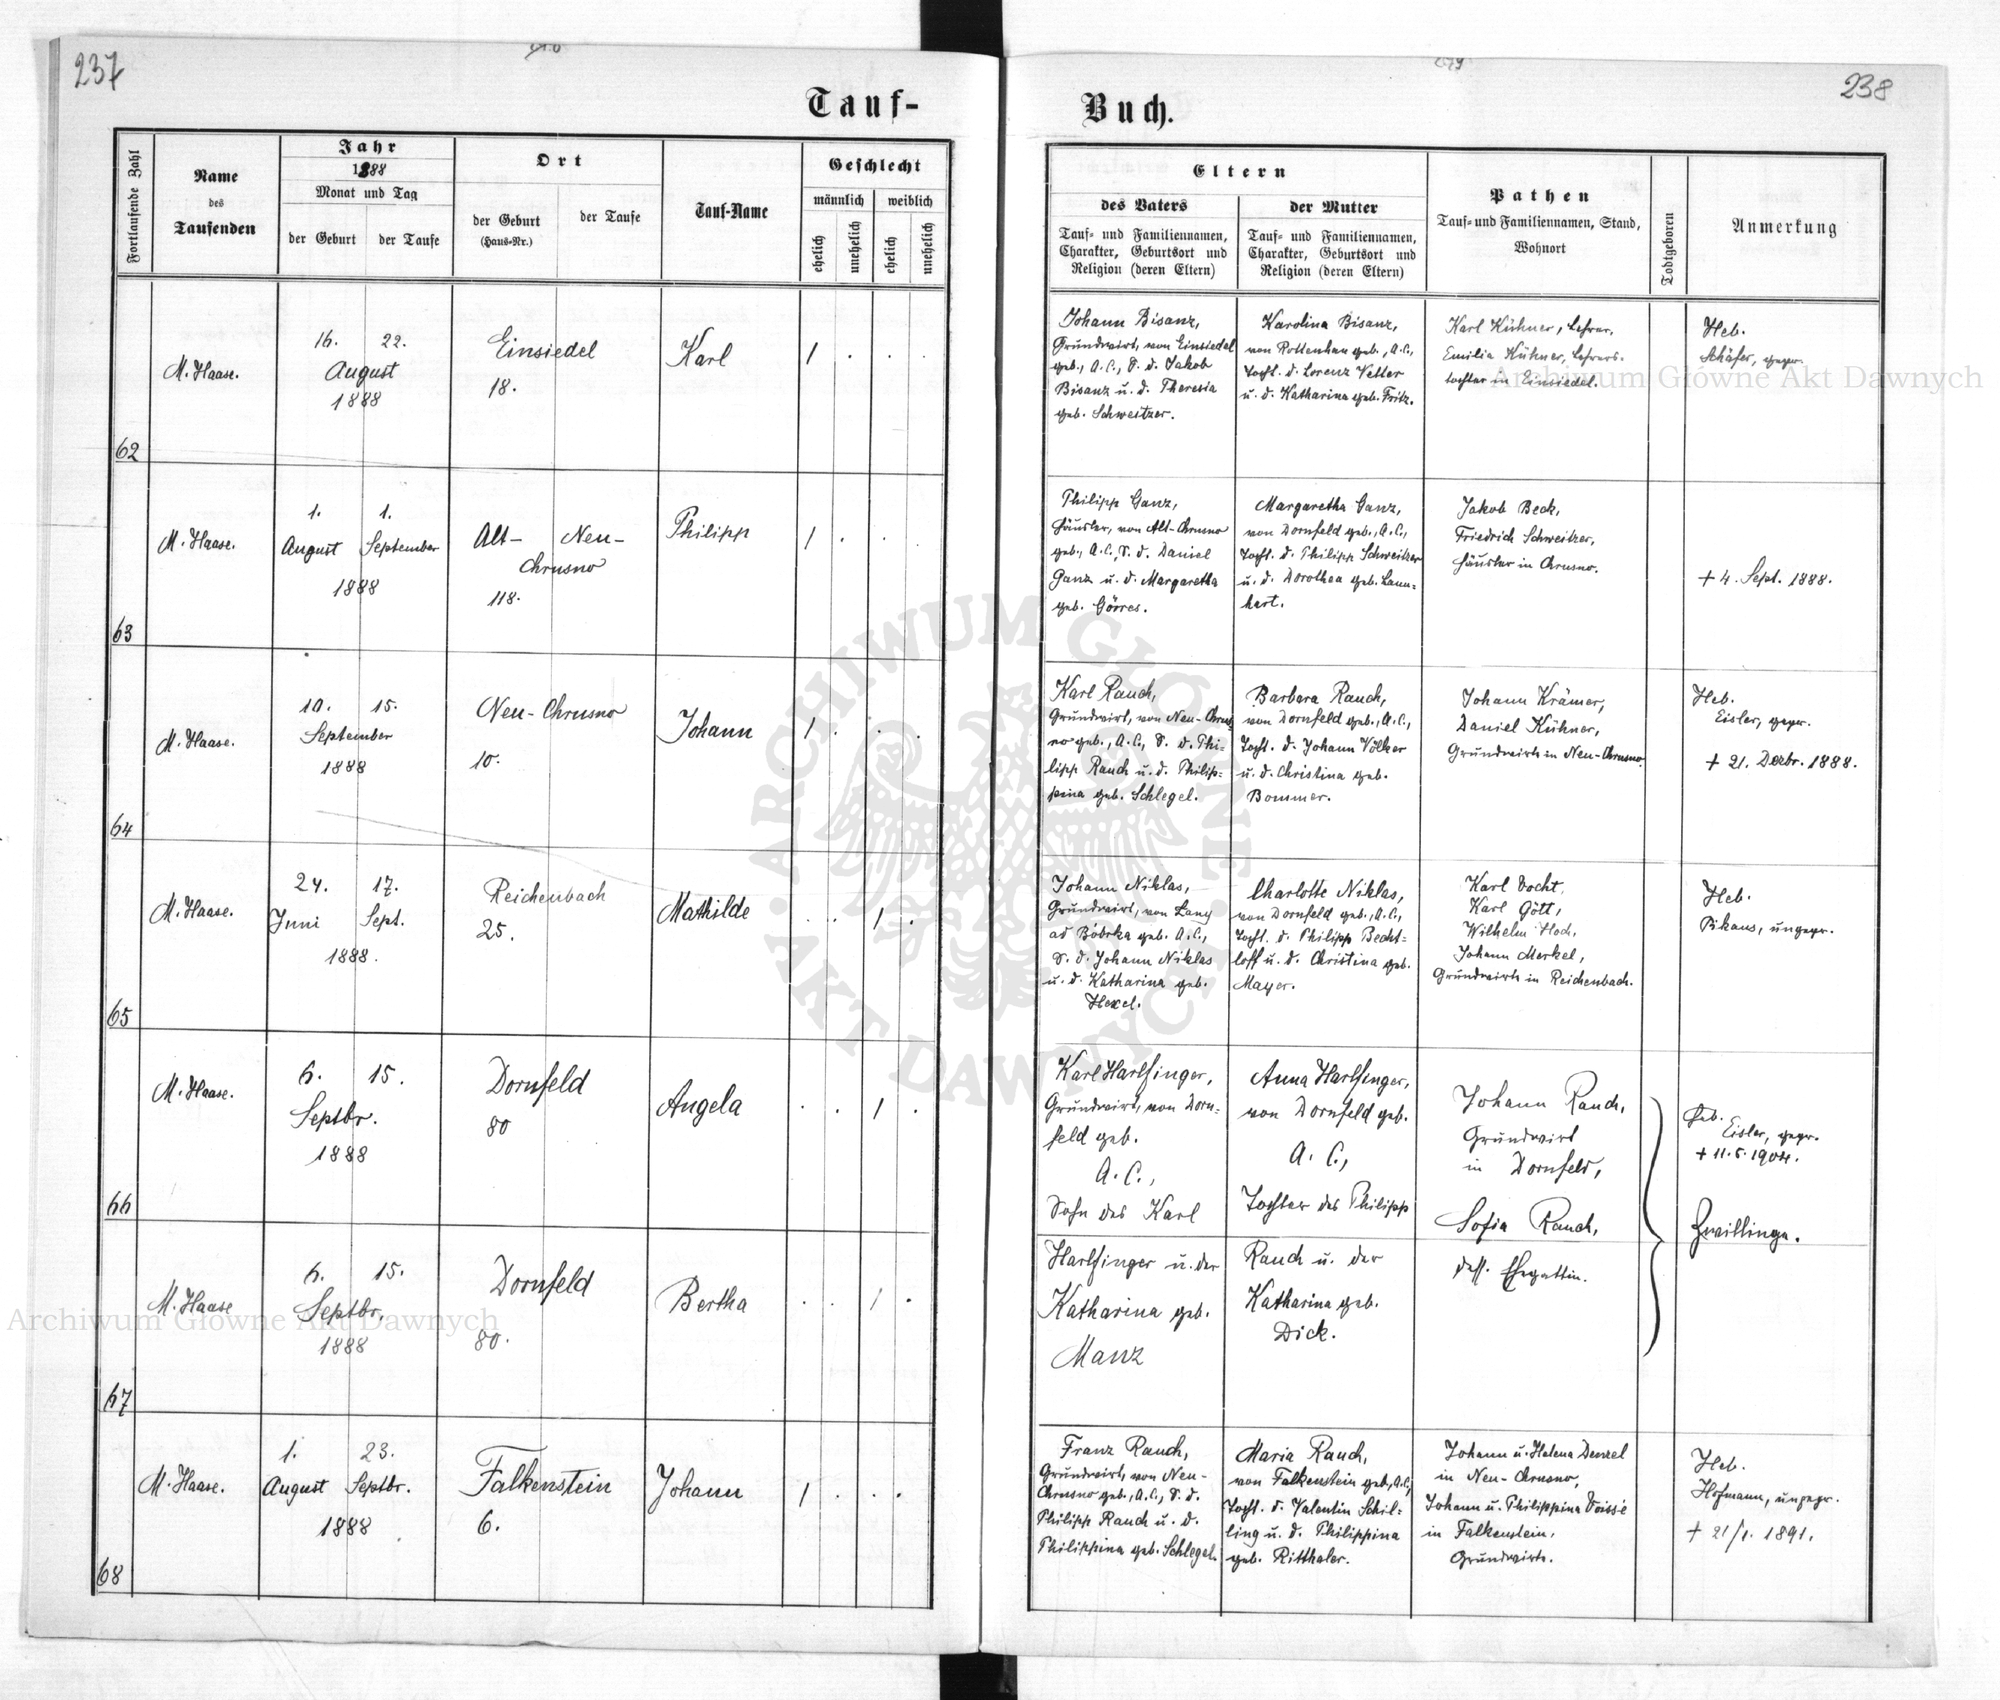 237
238
Tauf-
Buch.
Fortlaufende Zahl
Name
des
Taufenden
Jahr
1888
Monat und Tag
der Geburt
der Taufe
Ort
der Geburt
(Haus-Nr.)
der Taufe
Tauf-Name
Geschlecht
männlich
weiblich
ehelich
unehelich
ehelich
unehelich
Eltern
des Vaters
Tauf- und Familiennamen,
Charakter, Geburtsort und
Religion (deren Eltern)
der Mutter
Tauf- und Familiennamen,
Charakter, Geburtsort und
Religion (deren Eltern)
Pathen
Tauf- und Familiennamen, Stand,
Wohnort
Todtgeboren
Anmerkung
62
M. Haase.
16. 22.
August
1888
Einsiedel
18.
Karl
1
Johann Bisanz,
Grundwirt, von Einsiedel
geb., A.C., S. d. Jakob
Bisanz u. d. Theresia
geb. Schweitzer.
Karolina Bisanz,
von Rottenhan geb., A.C.,
Tocht. d. Lorenz Vetter
u. d. Katharina geb. Fritz.
Karl Kühner, Lehrer,
Emilia Kühner, Lehrers-
tochter in Einsiedel.
Heb.
Schäfer, gepr.
63
M. Haase.
1. 1.
August September
1888
Alt- Neu-
Chrusno
118.
Philipp
1
Philipp Ganz,
Häusler, von Alt-Chrusno
geb., A.C., S. d. Daniel
Ganz u. d. Margaretha
geb. Görres.
Margaretha Ganz,
von Dornfeld geb., A.C.,
Tocht. d. Philipp Schweitzer
u. d. Dorothea geb. Lann-
hart.
Jakob Beck,
Friedrich Schweitzer,
Häusler in Chrusno.
+ 4. Sept. 1888.
64
M. Haase.
10. 15.
September
1888
Neu-Chrusno
10.
Johann
1
Karl Rauch,
Grundwirt, von Neu-Chrus-
no geb., A.C., S. d. Phi-
lipp Rauch u. d. Philip-
pina geb. Schlegel.
Barbara Rauch,
von Dornfeld geb., A.C.,
Tocht. d. Johann Völker
u. d. Christina geb.
Bommer.
Johann Krämer,
Daniel Kühner,
Grundwirte in Neu-Chrusno.
Heb.
Eisler, gepr.
+ 21. Dezbr. 1888.
65
M. Haase.
24. 17.
Juni Sept.
1888.
Reichenbach
25.
Mathilde
1
Johann Niklas,
Grundwirt, von Lany
ad Bóbrka geb. A.C.,
S. d. Johann Niklas
u. d. Katharina geb.
Hexel.
Charlotte Niklas,
von Dornfeld geb., A.C.,
Tocht. d. Philipp Becht-
loff u. d. Christina geb.
Mayer.
Karl Vocht,
Karl Gött,
Wilhelm Hoch,
Johann Merkel,
Grundwirte in Reichenbach.
Heb.
Pikaus, ungepr.
66
M. Haase.
6. 15.
Septbr.
1888
Dornfeld
80
Angela
1
Karl Harlfinger,
Grundwirt, von Dorn-
feld geb.
A.C.,
Sohn des Karl
Anna Harlfinger,
von Dornfeld geb.
A.C.,
Tochter des Philipp
Johann Rauch,
Grundwirt
in Dornfeld,
Sofia Rauch,
Heb.
Eisler, gepr.
+ 11.5.1904.
Zwillinge.
67
M. Haase
6. 15.
Septbr.
1888
Dornfeld
80.
Bertha
1
Harlfinger u. der
Katharina geb.
Manz
Rauch u. der
Katharina geb.
Dick.
dess. Ehegattin.
68
M. Haase.
1. 23.
August Septbr.
1888
Falkenstein
6.
Johann
1
Franz Rauch,
Grundwirt, von Neu-
Chrusno geb., A.C., S. d.
Philipp Rauch u. d.
Philippina geb. Schlegel.
Maria Rauch,
von Falkenstein geb., A.C.,
Tocht. d. Valentin Schil-
ling u. d. Philippina
geb. Ritthaler.
Johann u. Helena Denzel
in Neu-Chrusno,
Johann u. Philippina
in Falkenstein,
Grundwirte.
Heb.
Hofmann, ungepr.
+ 21/1. 1891.
Archiwum Główne Akt Dawnych
Archiwum Główne Akt Dawnych
ARCHIWUM GŁÓWNE AKT DAWNYCH